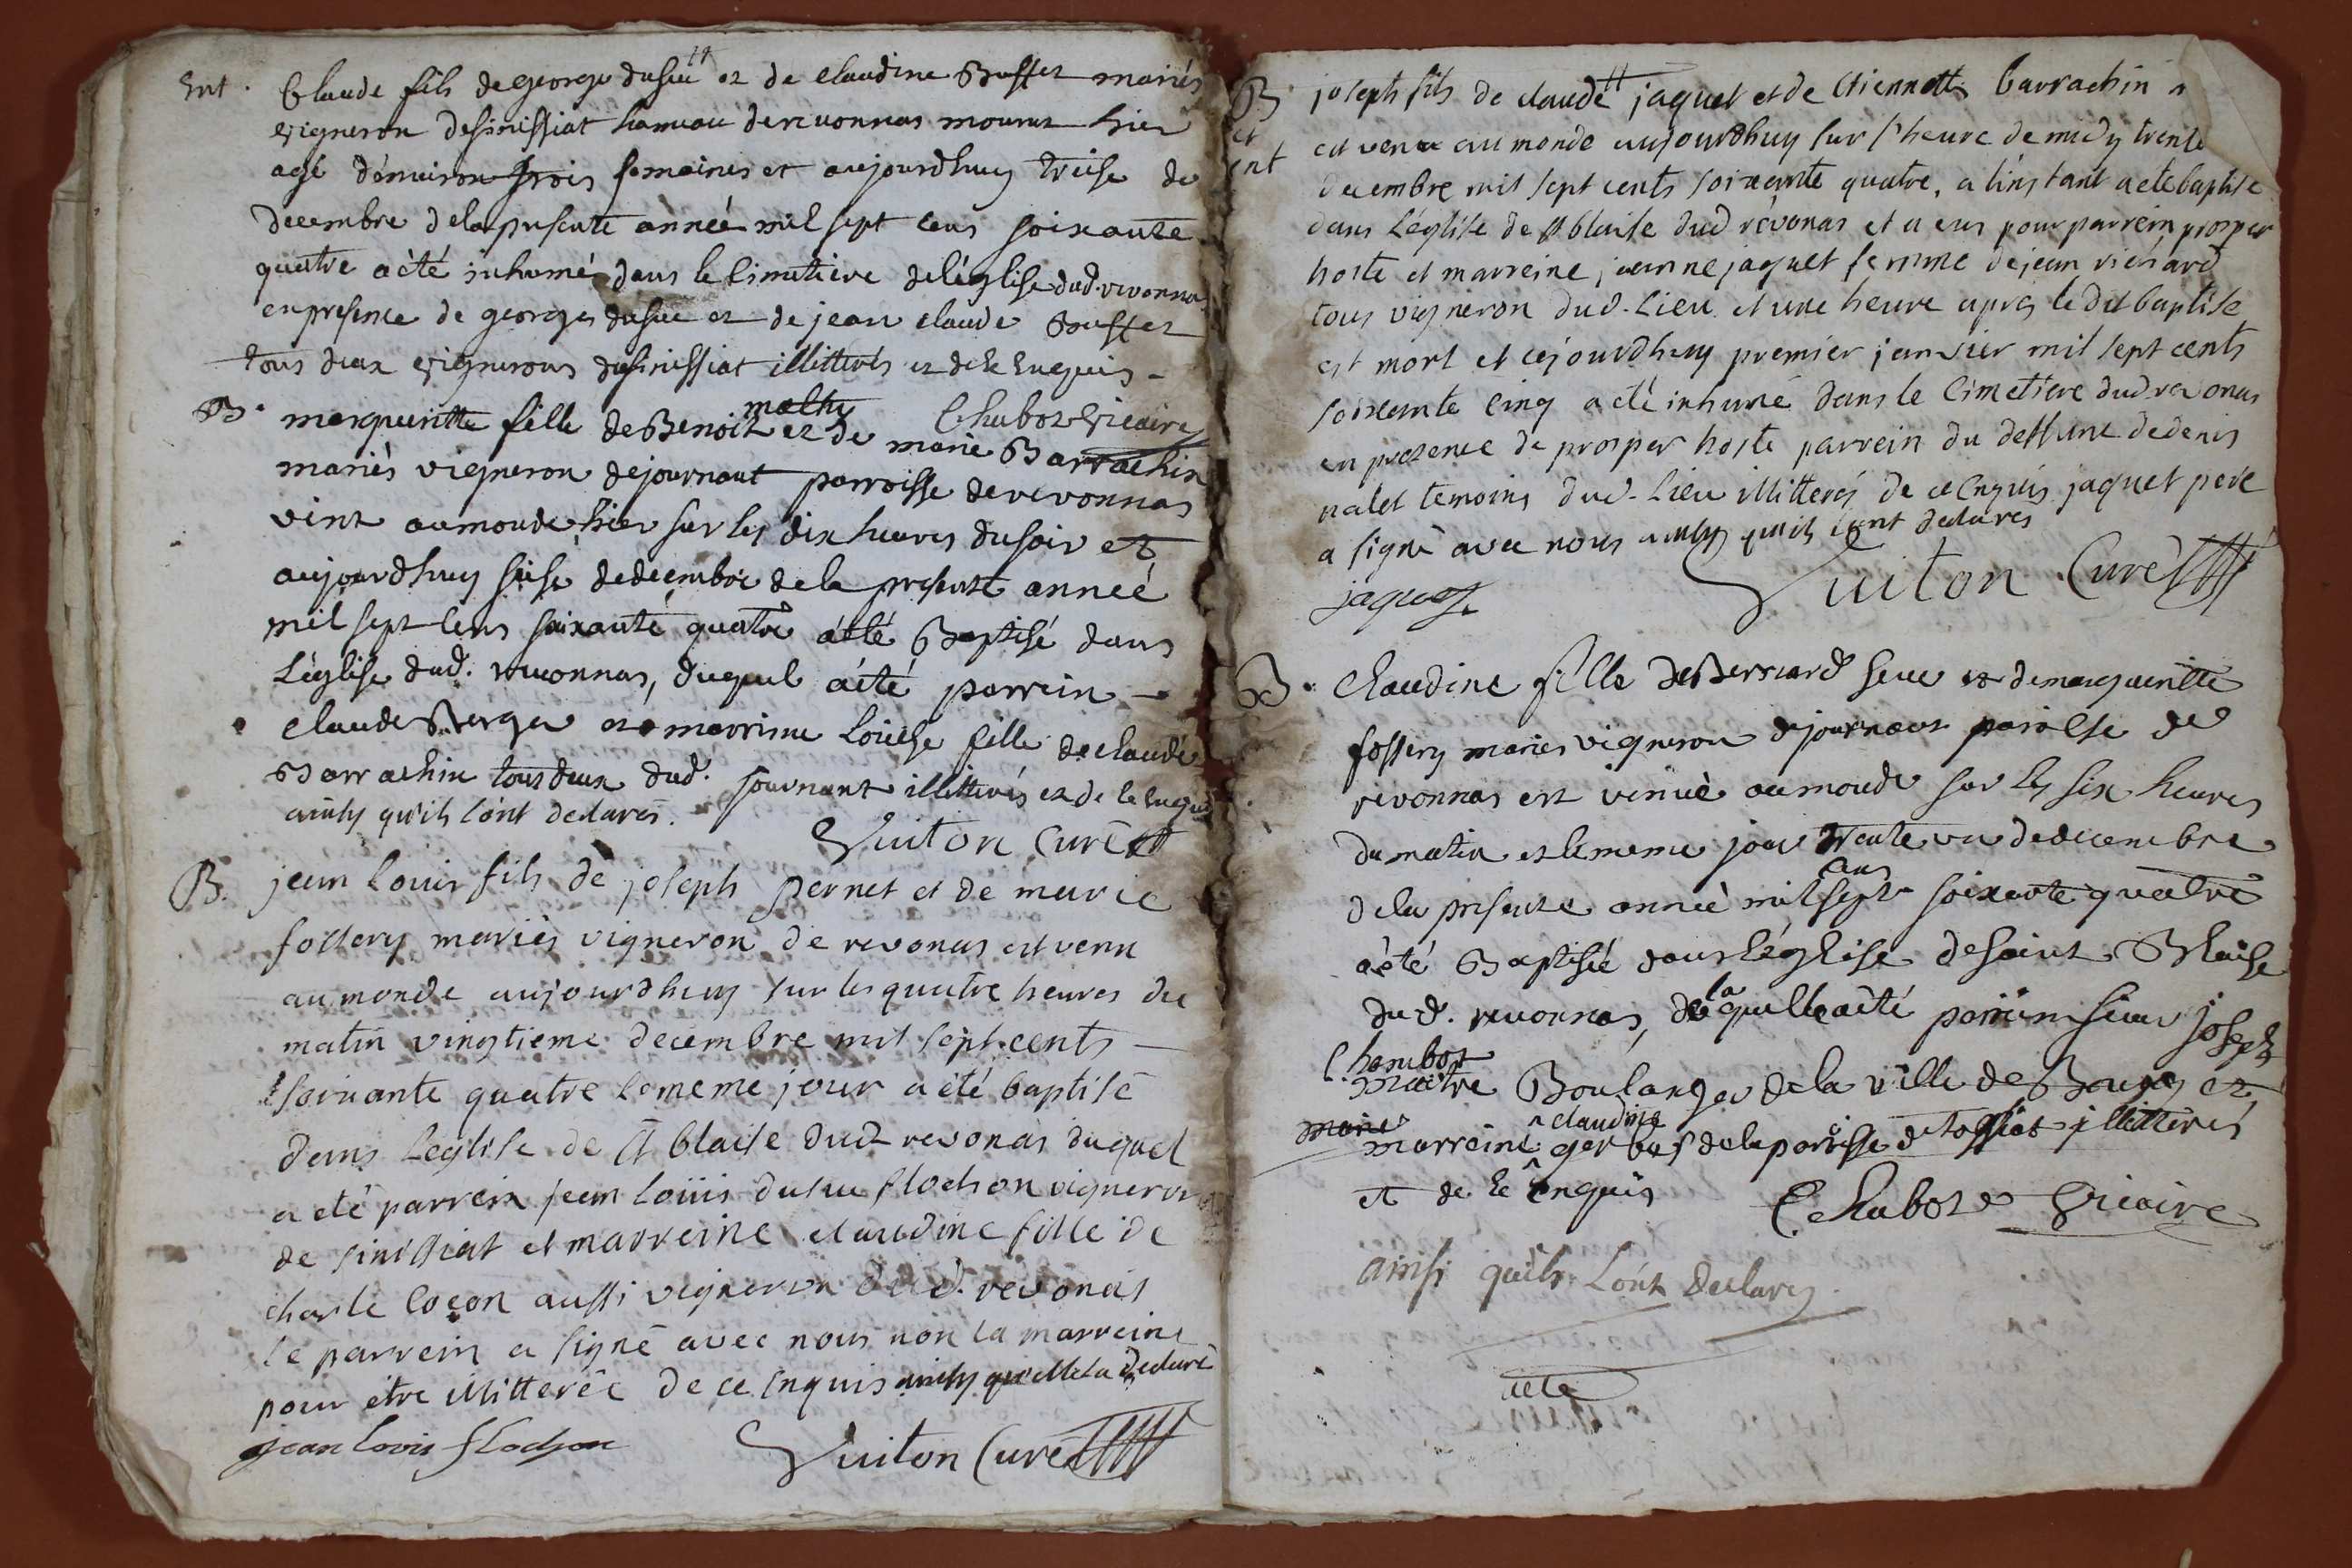 Ent. Claude fils de george dusuc et de claudine Buffet mariés
vigneron desinissiat hameau derevonnas mourut hier
agé d'environ trois semaines et aujourdhuy treise de
decembre delapresente anneé mil sept cens soixante
quatre a été inhumé dans le Cimetiere deléglise dud. revonnas
enpresence de georges dusuc et de jean claude Buffet
tous deux vignerons desinissiat illitterés et dece Enquis -
Chabot Vicaire
B. margueritte fille de Benoit mathy et de marie Barrachin
mariés vigneron dejournant parroisse de revonnas
vint aumonde hier sur les dix heures du soir et
aujourdhuy seise dedecembre de la presente anneé
mil sept cens soixante quatre a été Baptisé dans
L'église dud. revonnas, duquel a été parrein -
claude Berger et marreine Loüise fille de claude
Barrachin tous deux dud. journant illitterés et de ce enquis
ainsy qu'ils l'ont declarés.
Vuiton Curé
B. jean louis fils de joseph pernet et de marie
fossery mariés vigneron de revonas est venu
au monde aujourdhuy sur les quatre heures du
matin vingtieme decembre mil sept cents -
soixante quatre le meme jour a été baptisé
dans Leglise de st blaise dud revonas duquel
a eté parrein jean loüis dusuc flochon vigneron
de sinissiat et marreine claudine fille de
charle cocon aussi vigneron dud. revonas
le parrein a signé avec nous non la marreine
pour étre illitterée de ce enquis ainsy qu'elle la declaré
jean louis flochon Vuiton Curé
B et ent joseph fils de claude jaquet et de Etiennette barrachin
est venu au monde aujourdhuy sur l'heure de midy trente
decembre mil sept cents soixante quatre, a linstant a eté baptisé
dans L'églsie de st blaise dud révonas et a eus pour parrein prosper
hoste et marreine jeanne jaquet femme de jean richard
tous vigneron dud. Lieu et une heure apres le dit baptise
est mort et cejourdhuy premier janvier mil sept cents
soixante cinq a été inhumé dans le cimetiere dud revonas
en presence de prosper hoste parrein du deffunt de denis
nalet temoins dud. Lieu illitterés de ce enquis jaquet pere
a signé avec nous ainsy qu'ils l'ont declarés
jaquet Vuiton Curé
B. claudine fille de Bernard seve et demargueritte
fossery mariés vigneron dejournant paroisse de
revonnas est venuè aumonde sur les six heures
du matin et le meme jour trente un dedecembre
dela presente anneé mil sept cens soixante quatre
a été Baptisée dans L'église desaint Blaise
dud. revonnas, de laquelle a été parrein sieur joseph
Chambot
maitre Boulanger dela ville de Bourg et
marie
marreine claudine gerbas delaparoisse detossiat illitterés
et de ce enquis Chabot Vicaire
ainsi qu'ils L'ont declarés.